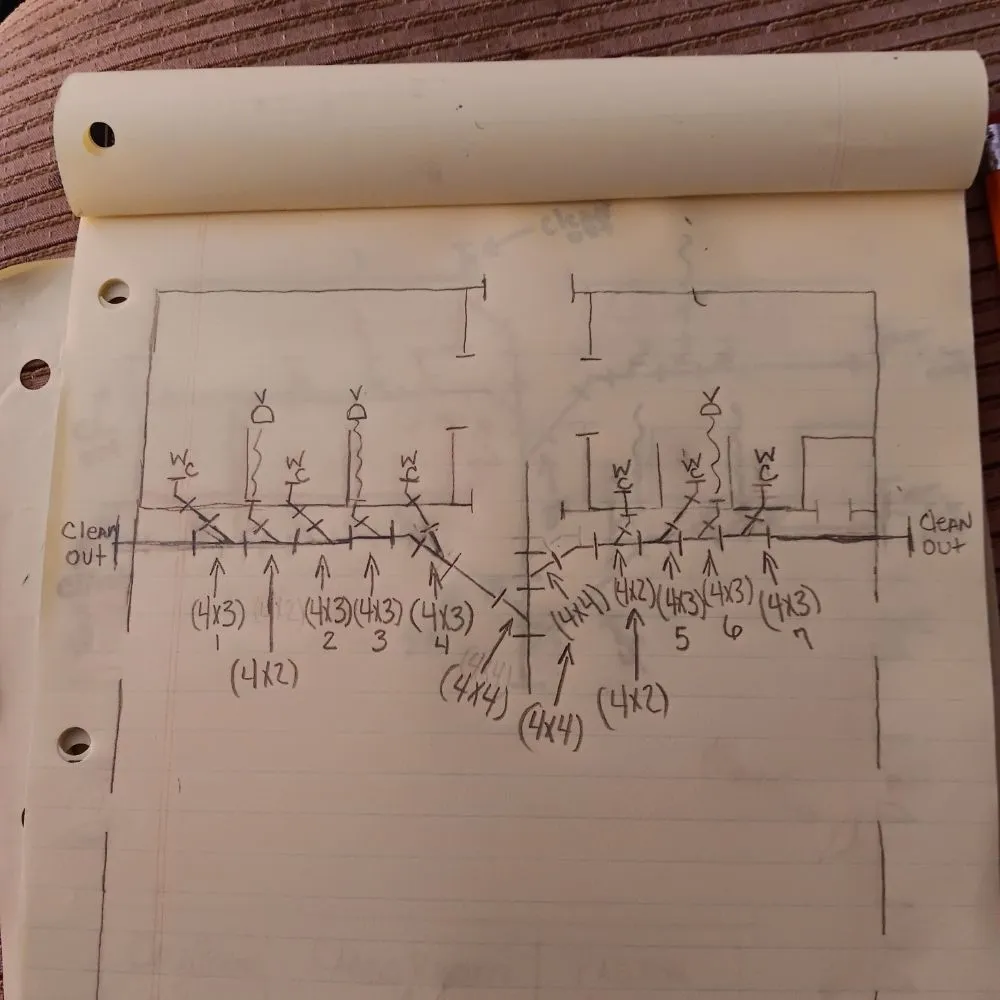 V
D
V
D
V
D
WC
WC
WC
WC
WC
WC
Clean
out
Clean
out
(4x3)
1
(4x2)
(4x3)
2
(4x3)
3
(4x3)
4
(4x4)
(4x4)
(4x4)
(4x2)
(4x2)
(4x3)
5
(4x3)
6
(4x3)
7